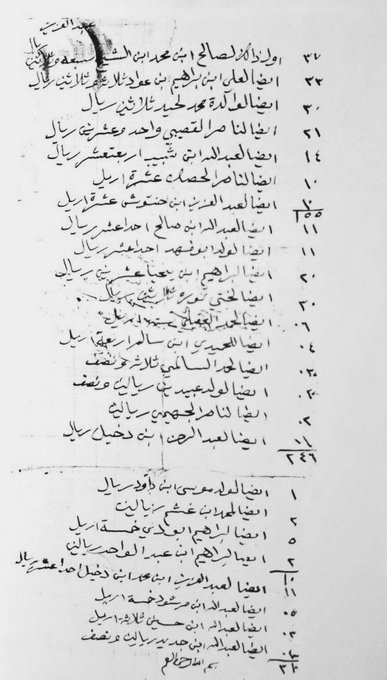 عبد العزيز
٣٧ اول ذالك لصالح ابن محمد ابن الشيخ سبعه وثلاثين ريال
٣٣ ايضا لعلي ابن براهيم ابن عواد ثلاثه وثلاثين ريال
٣٠ ايضا لوالدة محمد لحيد ثلاثين ريال
٢١ ايضا لناصر القصيبي واحد وعشرين ريال
١٤ ايضا لعبدالله ابن شبيب اربعتعشر ريال
١٠ ايضا لناصر الحصان عشرة اريل
١٠ ايضا لعبد العزيز ابن حنتوشي عشرة اريل
١٥٥
١١ ايضا لعبدالله ابن صالح احدا عشر ريال
١١ ايضا لولد ابو فهد احدا عشر ريال
٢٠ ايضا لبراهيم ابن يحيا عشرين ريال
٣٠ ايضا لختي نوره ثلاثين ريال
٠٦ ايضا لحمد ستة اريل
٠٤ ايضا ابن سالم اربعة اريل
ايضا لحمد السالمي ثلاثه ونصف
ايضا لولد عبيد ريالين ونصف
٠٢ ايضا لناصر الجهيمي ريالين
٠١ ايضا لعبد الرحمن ابن دخيل ريال
٢٤٦
١ ايضا لولد موسى ابن داود ريال
٢ ايضا لمحمد ابن غشم ريالين
٥ ايضا لبراهيم خمسة اريل
٢ ايضا لبراهيم ابن عبد الواحد ريالين
١٠
١١ ايضا لعبد العزيز ابن محمد ابن دخيل احدا عشر ريال
٠٥ ايضا لعبدالله ابن مرشود خمسة اريل
٠٣ ايضا لعبدالله ابن حسين ثلاثة اريل
ايضا لعبدالله ابن حديد ريالين ونصف